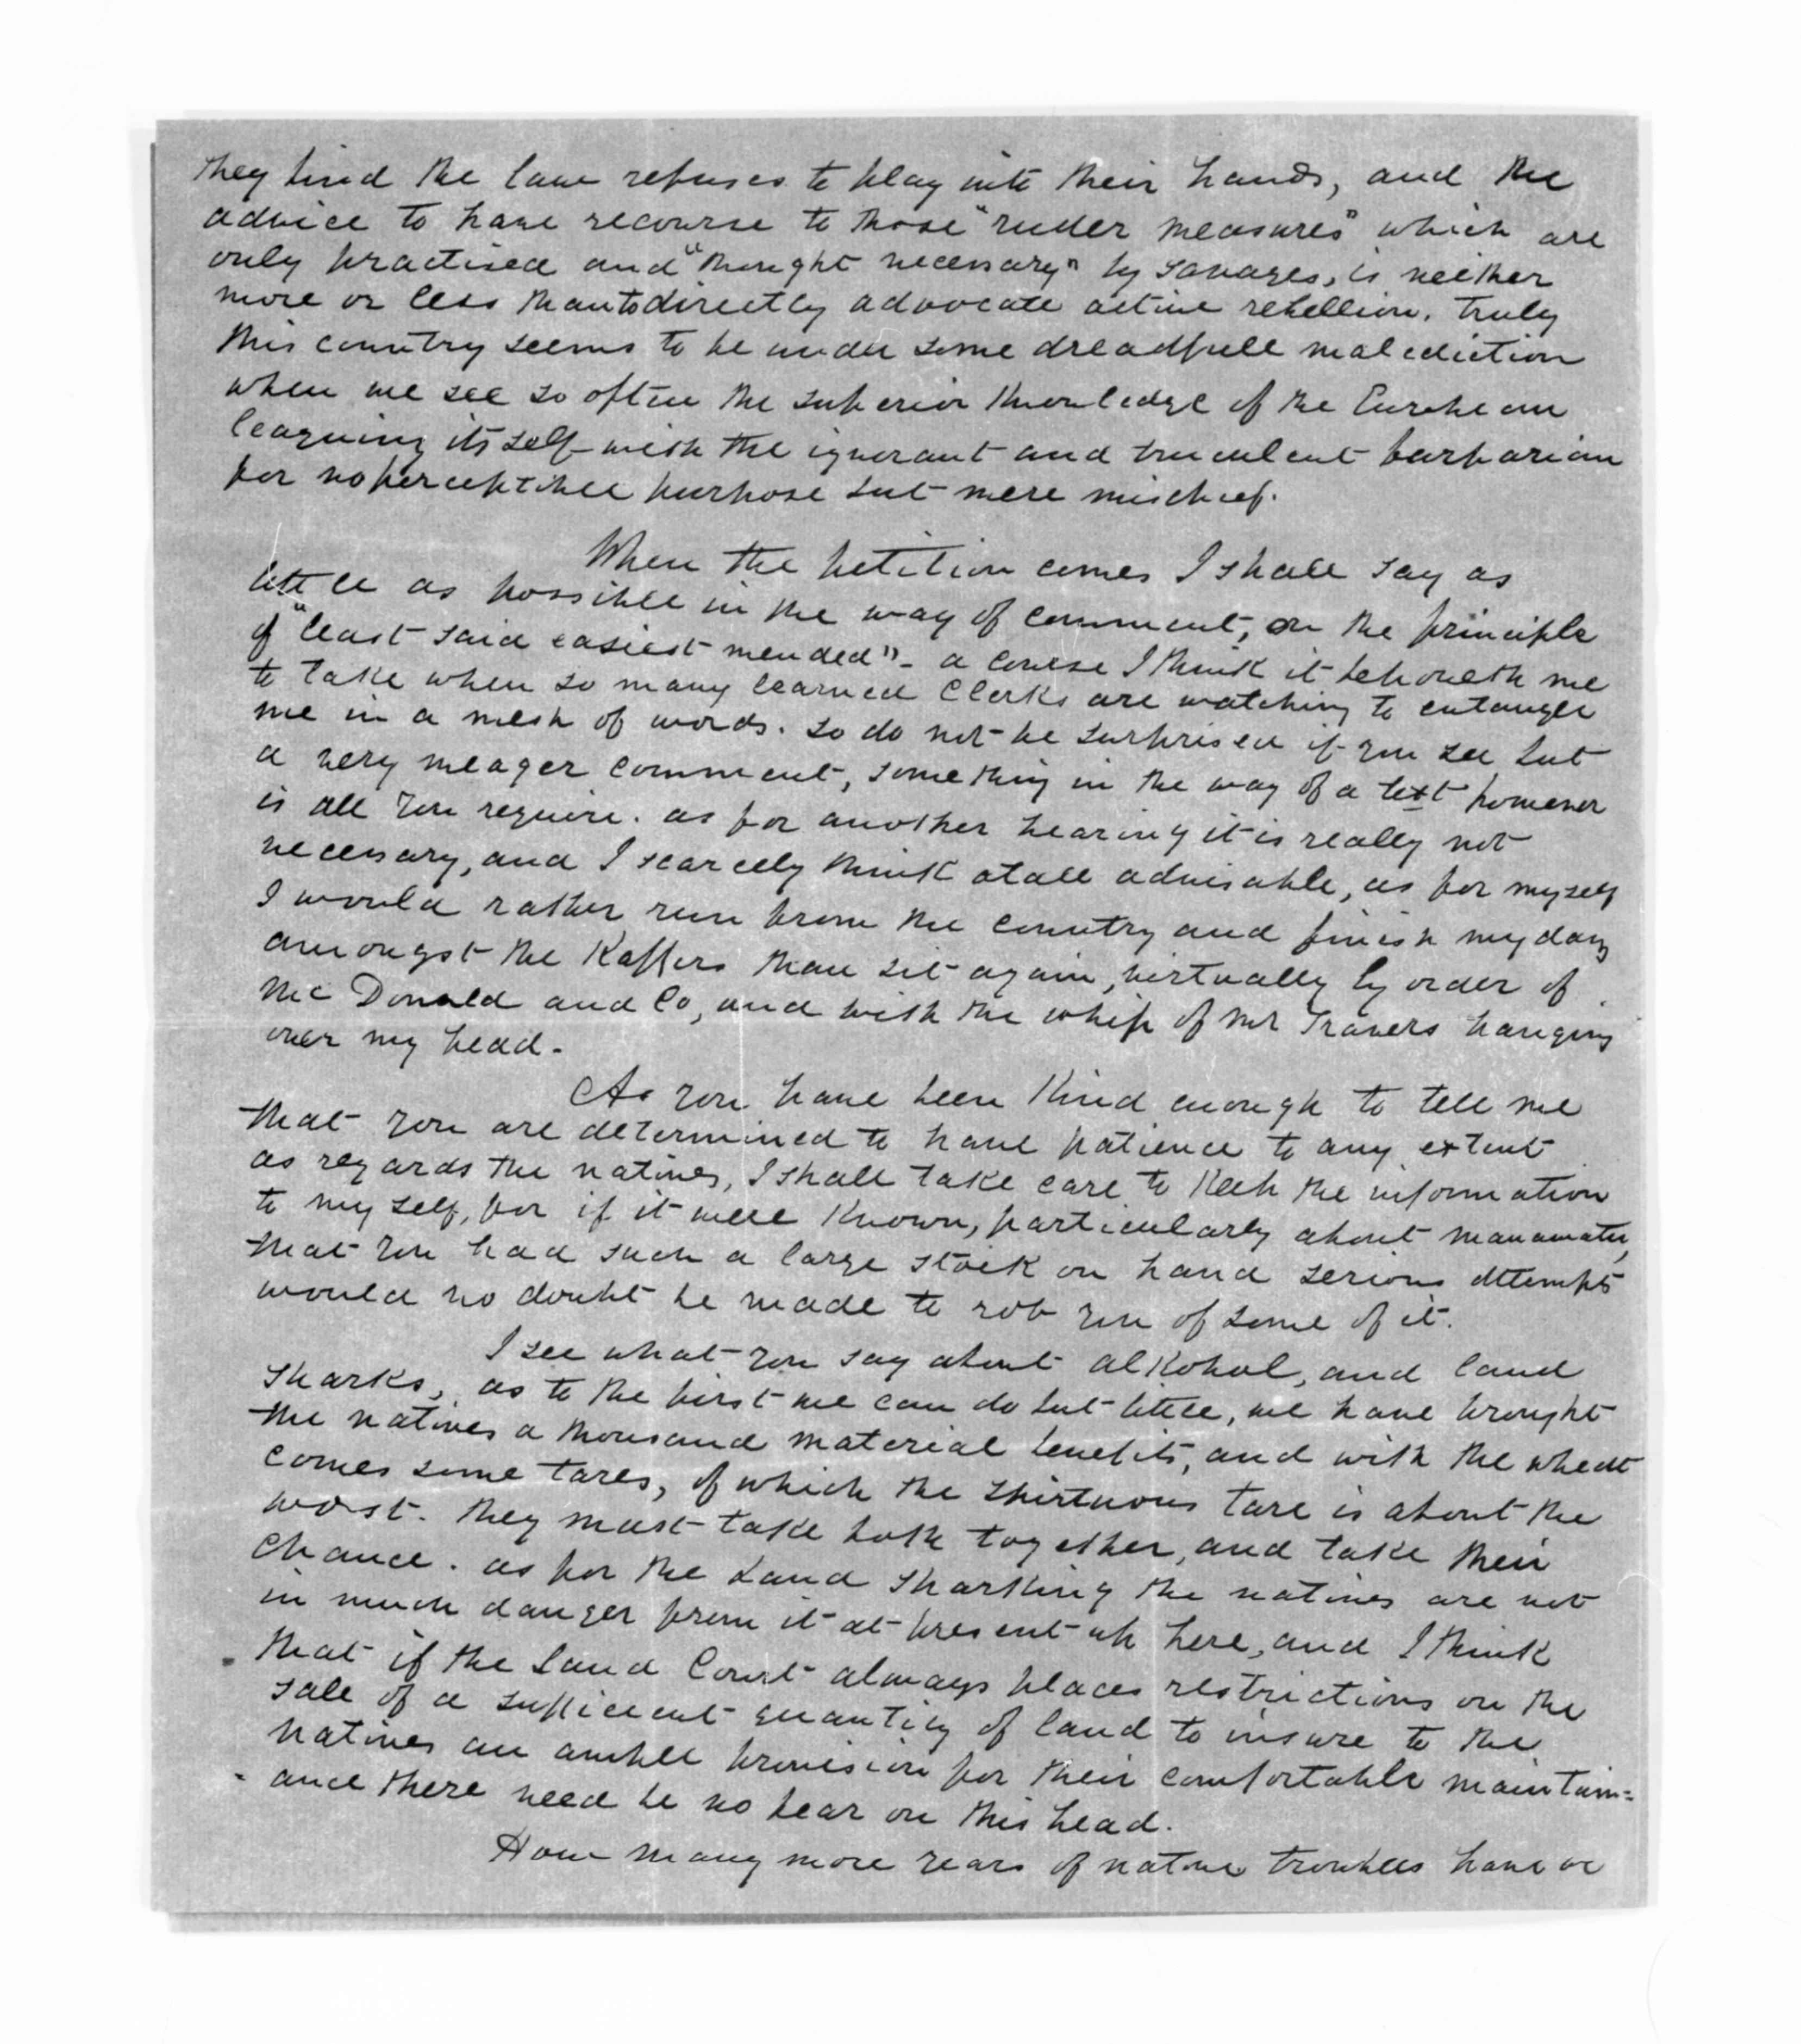 they find the law refuses to play into their hands, and the
advice to have recourse to those "ruder measures" which are
only practised and "thought necessary" by savages, is neither
more or less than to directly advocate active rebellion. truly
this country seems to be under some dreadfull malediction
when we see so often the superior knowledge of the European
leaguing its self with the ignorant and truculent barbarian
for no perceptible purpose but mere mischief.
When the petition comes I shall say as
little as possible in the way of comment, on the principle
of "least said easiest mended" - a course I think it behoveth me
to take when so many learned Clerks are watching to entangle
me in a mesh of words. so do not be surprised if you see but
a very meager comment, something in the way of a text however
is all you require. as for another hearing it is really not
necessary, and I scarcely think atall advisable, as for myself
I would rather run from the country and finish my days
amongst the Kaffirs than sit again, virtually by order of
Mc Donald and Co, and with the whip of Mr Travers hanging
over my head.
As you have been kind enough to tell me
that you are determined to have patience to any extent
as regards the natives, I shall take care to keep the information
to my self, for if it were known, particularly about Manawatu,
that you had such a large stock on hand serious attempts
would no doubt be made to rob you of some of it.
I see what you say about alkohol, and land
sharks, as to the first we can do but little, we have brought
the natives a thousand material benefits, and with the wheat
comes some tares, of which the spirtuous tare is about the
worst. they must take both together, and take their
chance. as for the Land Sharking the natives are not
in much danger from it at present up here, and I think
that if the Land Court always places restrictions on the
sale of a sufficient quantity of land to insure to the
natives an ample provision for their comfortable maintain=
ance there need be no fear on this head.
How many more years of native troubles have we